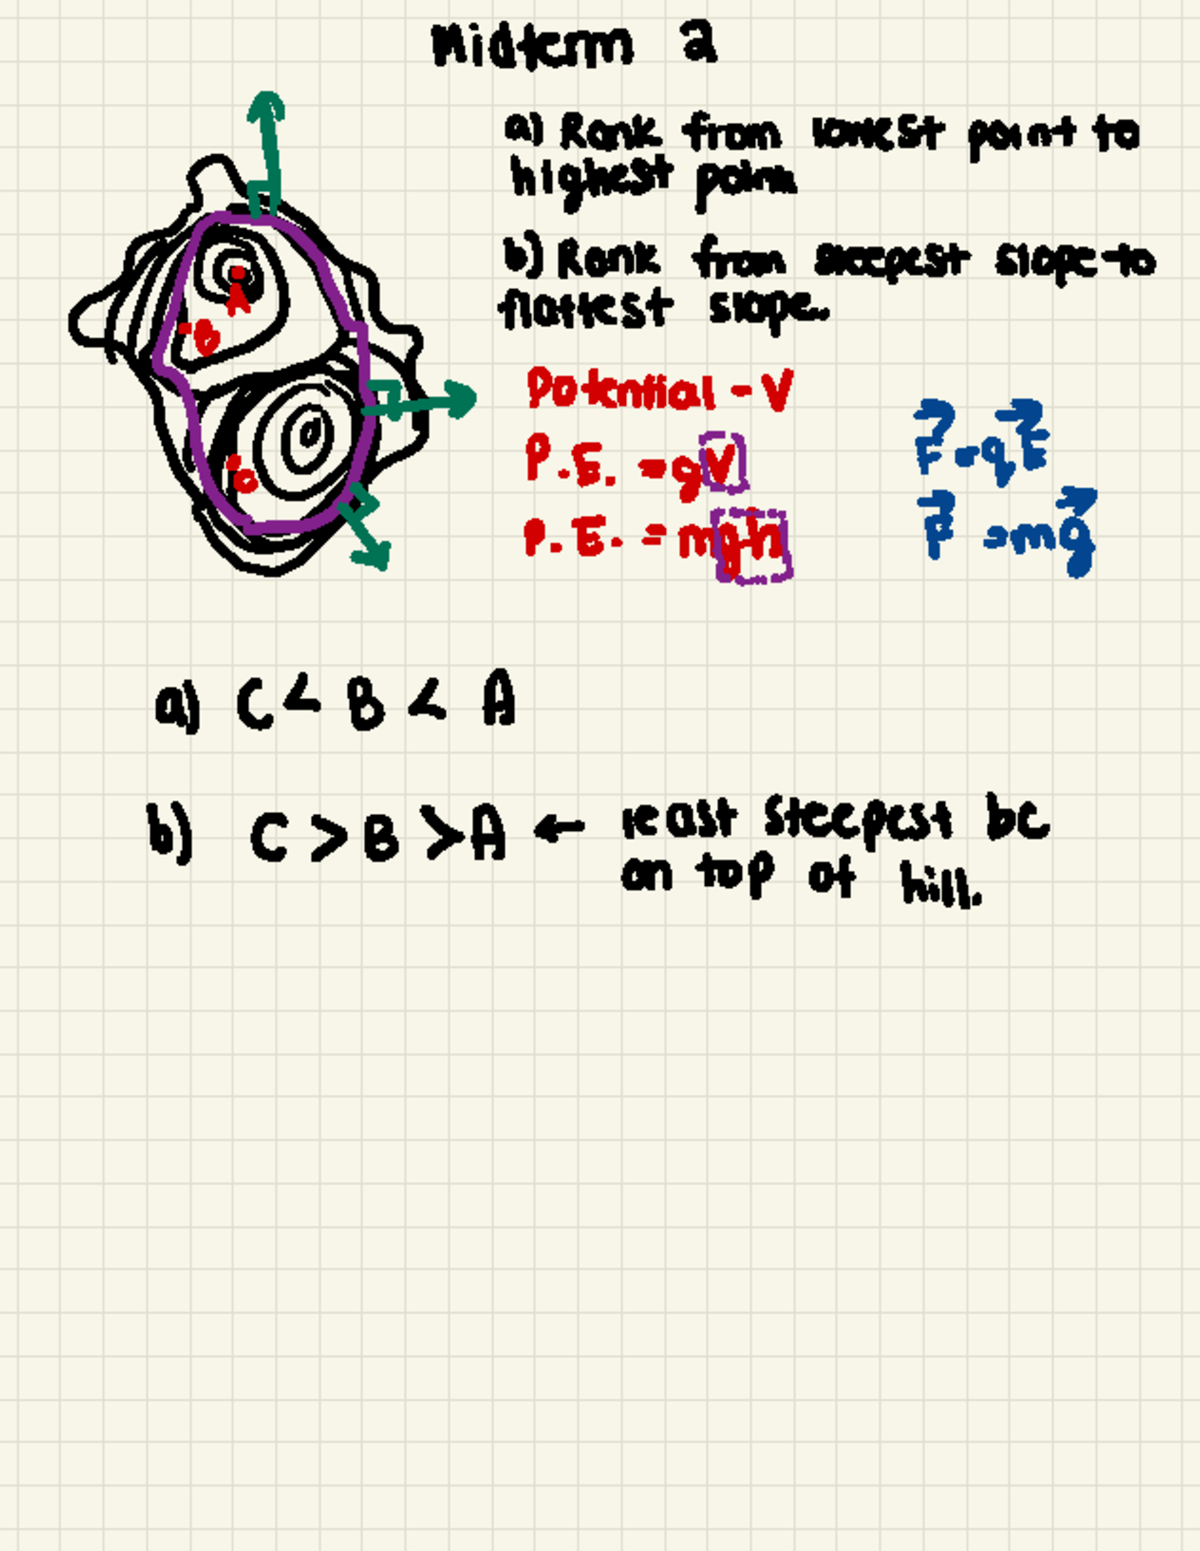 Midterm 2
a) Rank from lowest point to
highest point
b) Rank from steepest slope to
flattest slope.
A
B
C
Potential - V
P.E. = qV
P.E. = mgh
F = qE
F = mg
a) C < B < A
b) C > B > A ← least steepest bc
on top of hill.